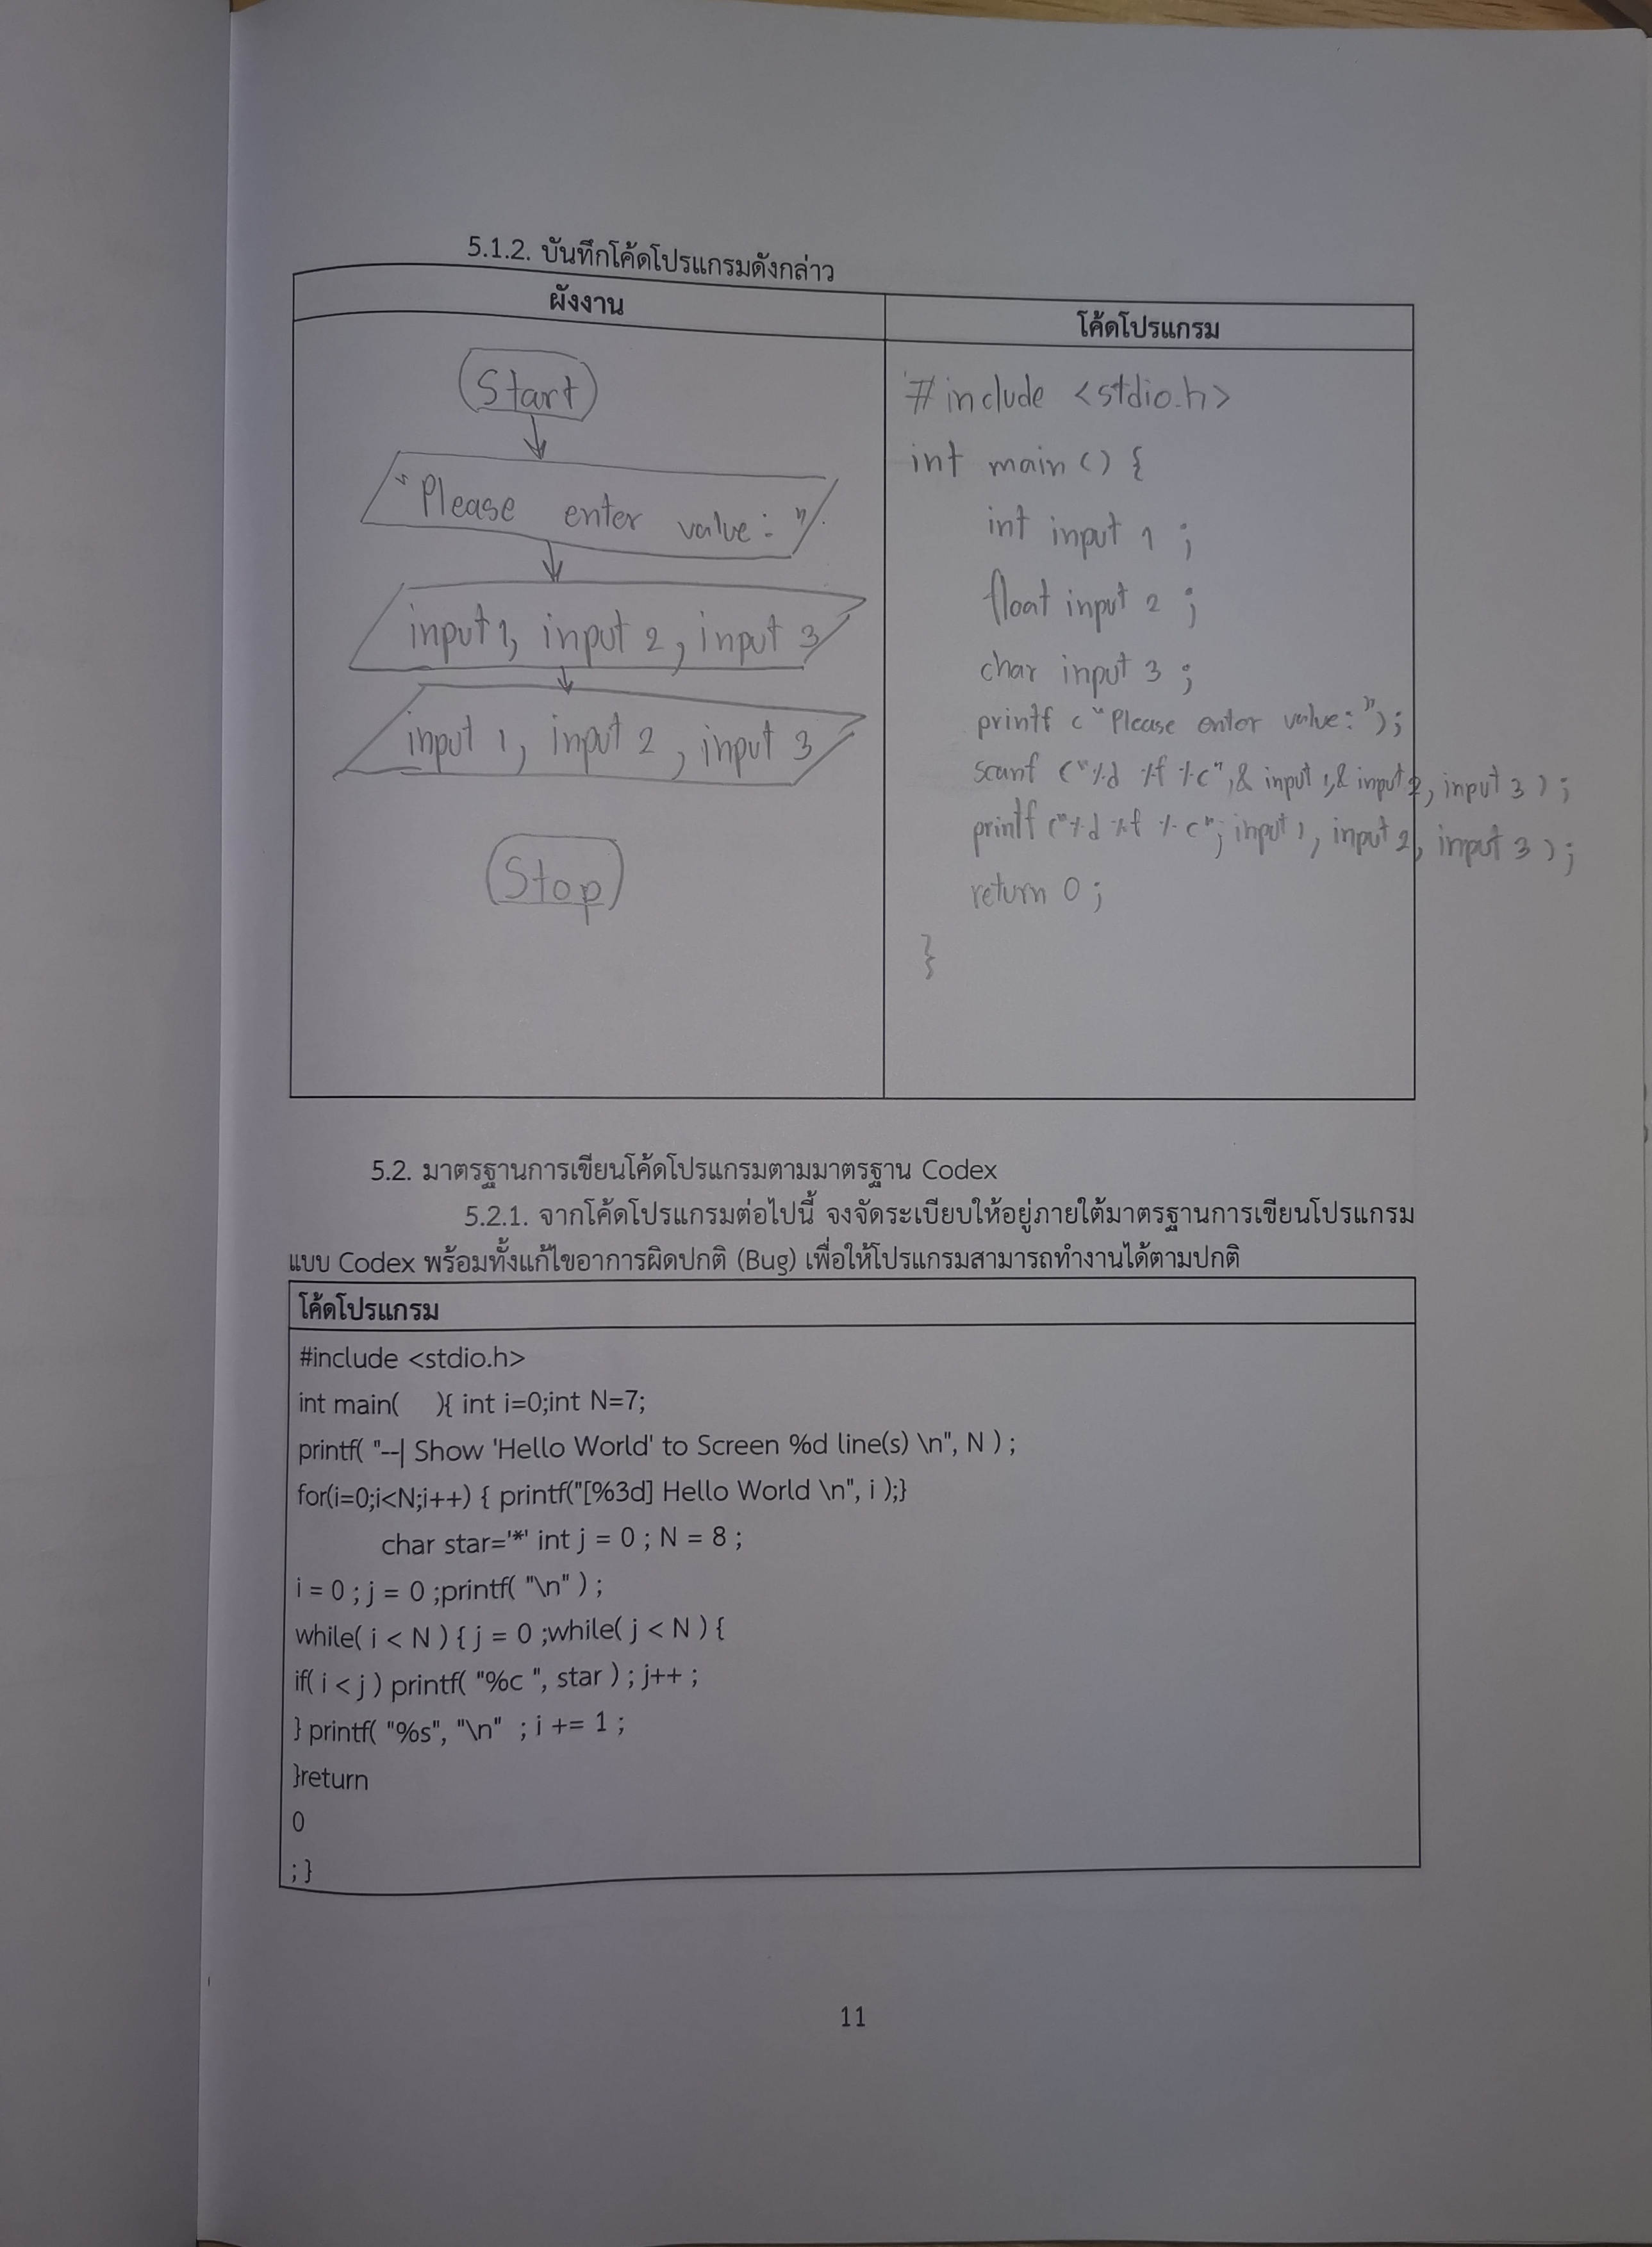 5.1.2. บันทึกโค้ดโปรแกรมดังกล่าว
ผังงาน
โค้ดโปรแกรม
Start
"Please enter value: "
input 1, input 2, input 3
input 1, input 2, input 3
Stop
#include <stdio.h>
int main () {
int input 1 ;
float input 2 ;
char input 3 ;
printf ("Please enter value: ");
scanf ("%d %f %c",& input 1,& input 2, input 3 );
printf ("%d %f %c"; input 1, input 2, input 3 );
return 0 ;
}
5.2. มาตรฐานการเขียนโค้ดโปรแกรมตามมาตรฐาน Codex
5.2.1. จากโค้ดโปรแกรมต่อไปนี้ จงจัดระเบียบให้อยู่ภายใต้มาตรฐานการเขียนโปรแกรม
แบบ Codex พร้อมทั้งแก้ไขอาการผิดปกติ (Bug) เพื่อให้โปรแกรมสามารถทำงานได้ตามปกติ
โค้ดโปรแกรม
#include <stdio.h>
int main( ){ int i=0;int N=7;
printf( "--| Show 'Hello World' to Screen %d line(s) \n", N ) ;
for(i=0;i<N;i++) { printf("[%3d] Hello World \n", i );}
char star='*' int j = 0 ; N = 8 ;
i = 0 ; j = 0 ;printf( "\n" ) ;
while( i < N ) { j = 0 ;while( j < N ) {
if( i < j ) printf( "%c ", star ) ; j++ ;
} printf( "%s", "\n" ; i += 1 ;
}return
0
; }
11